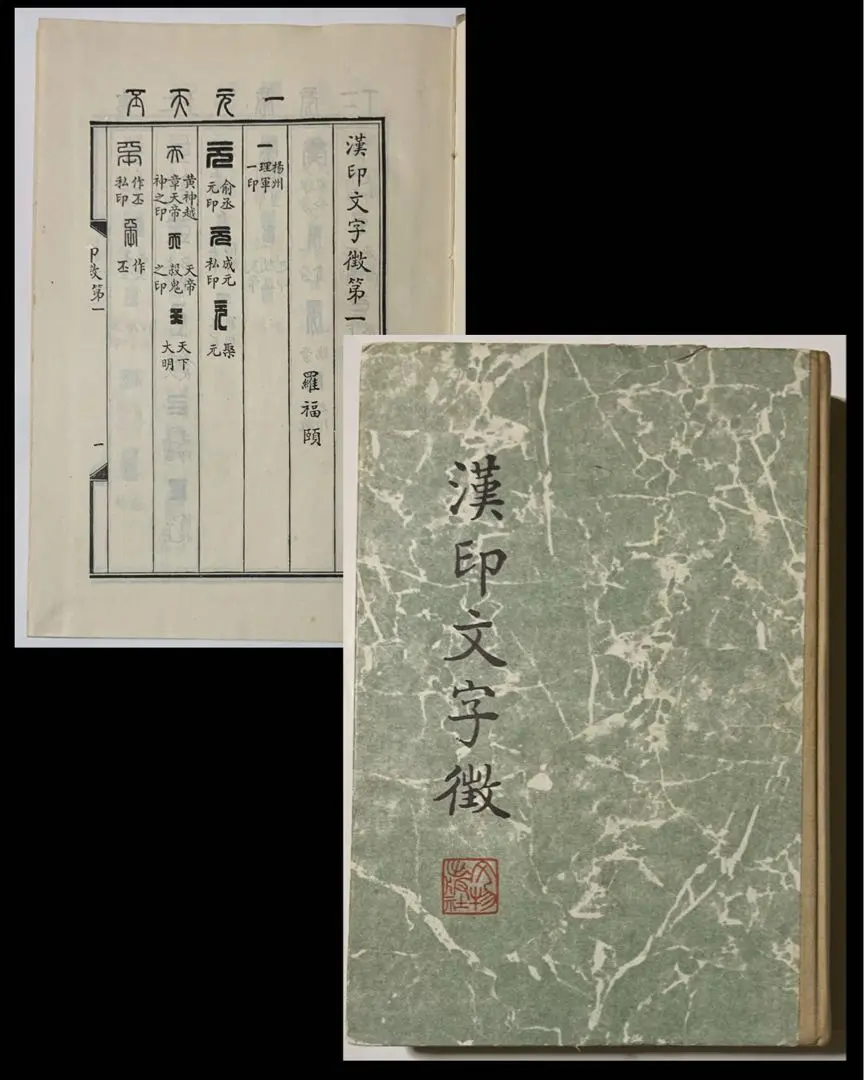 一元天丕
漢印文字徵第一
羅福頤
一
楊州
理軍
一印
元
俞丞
元印
元
成元
私印
元
元
天
黃神越
章天帝
神之印
天
天帝
殺鬼
之印
天
天下
大明
丕
作丕
私印
丕
作
丕
印徵第一
一
漢印文字徵
文物
出版社